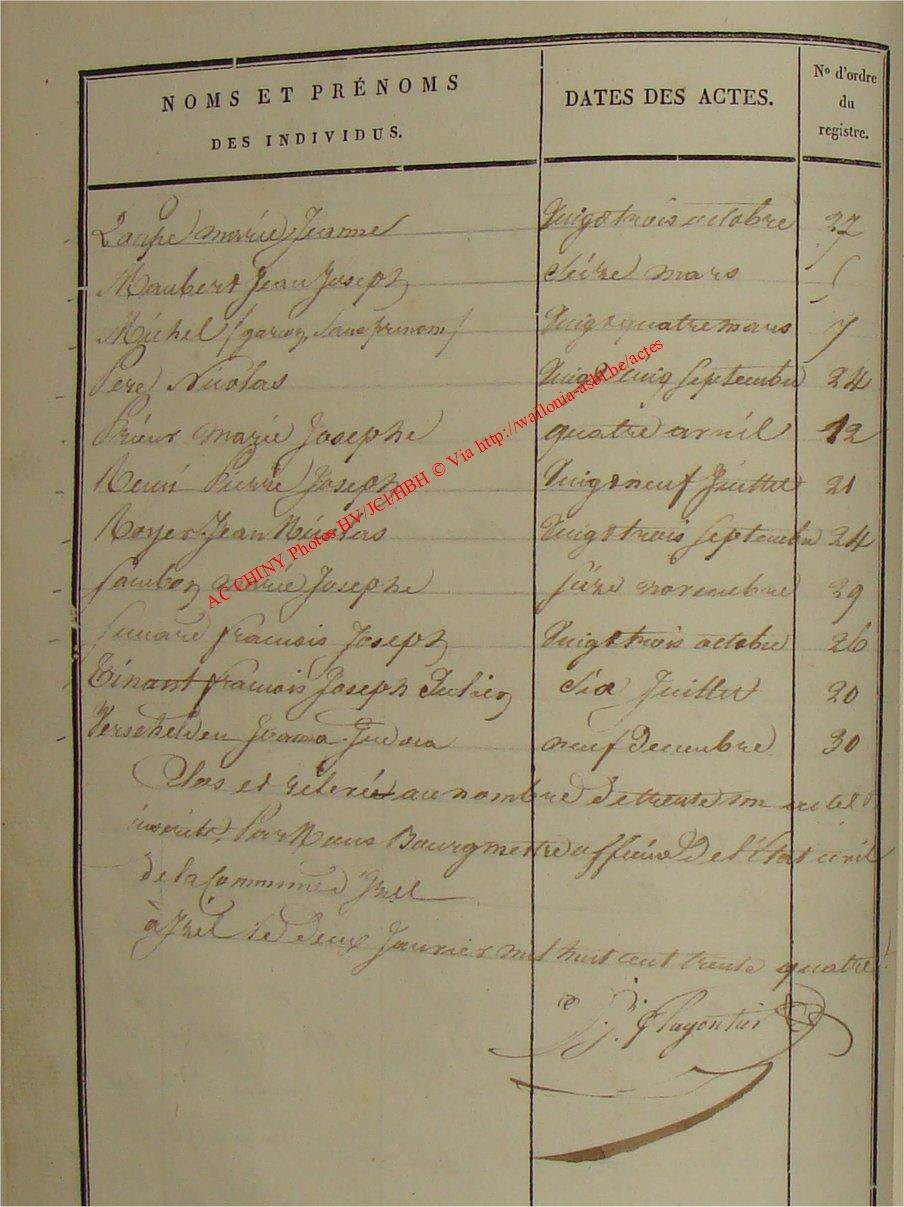 NOMS ET PRÉNOMS
DES INDIVIDUS.
DATES DES ACTES.
No d'ordre
du
registre.
Laupe marie Jeanne Vingt trois octobre 27
Maubert Jean Joseph Seize mars 5
Michel (garcon Sans prenom) Vingt quatre mars 7
Pere Nicolas Vingt cinq Septembre 24
Prieur marie Josephe quatre avril 12
Pierre Joseph Vingt neuf Juillet 21
Royer Jean Nicolas Vingt trois Septembre 24
Sambon marie Josephe Seize novembre 29
francois Joseph Vingt trois octobre 26
Tinant francois Joseph Julien Six Juillet 20
Verschelden neuf Decembre 30
Clos et au nombre de trente un actes
inscrits Par Nous Bourgmestre officier de l'État civil
de la Commune d'Izel
à Izel le deux Janvier mil huit cent trente quatre
AC CHINY Photos HV/JCl/HBH © Via http://wallonia-asbl.be/actes